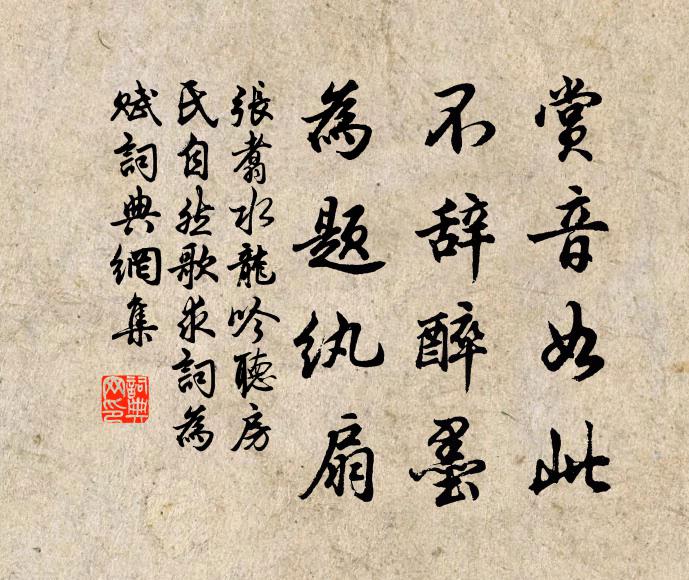 賞音如此
不辞醉墨
為題紈扇
張翥水龍吟聽房
氏自然歌求詞為
賦詞典網集
詞典网印